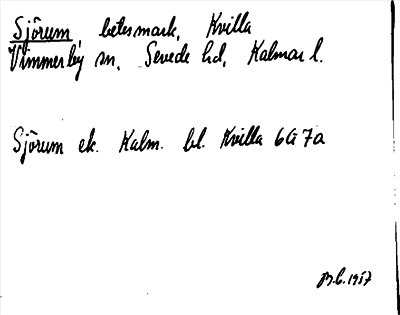 Sjörum, betesmark, Kvilla
Vimmerby sn, Sevede hd, Kalmar l.
Sjörum ek. Kalm. bl. Kvilla 6G 7a
B.C. 1957